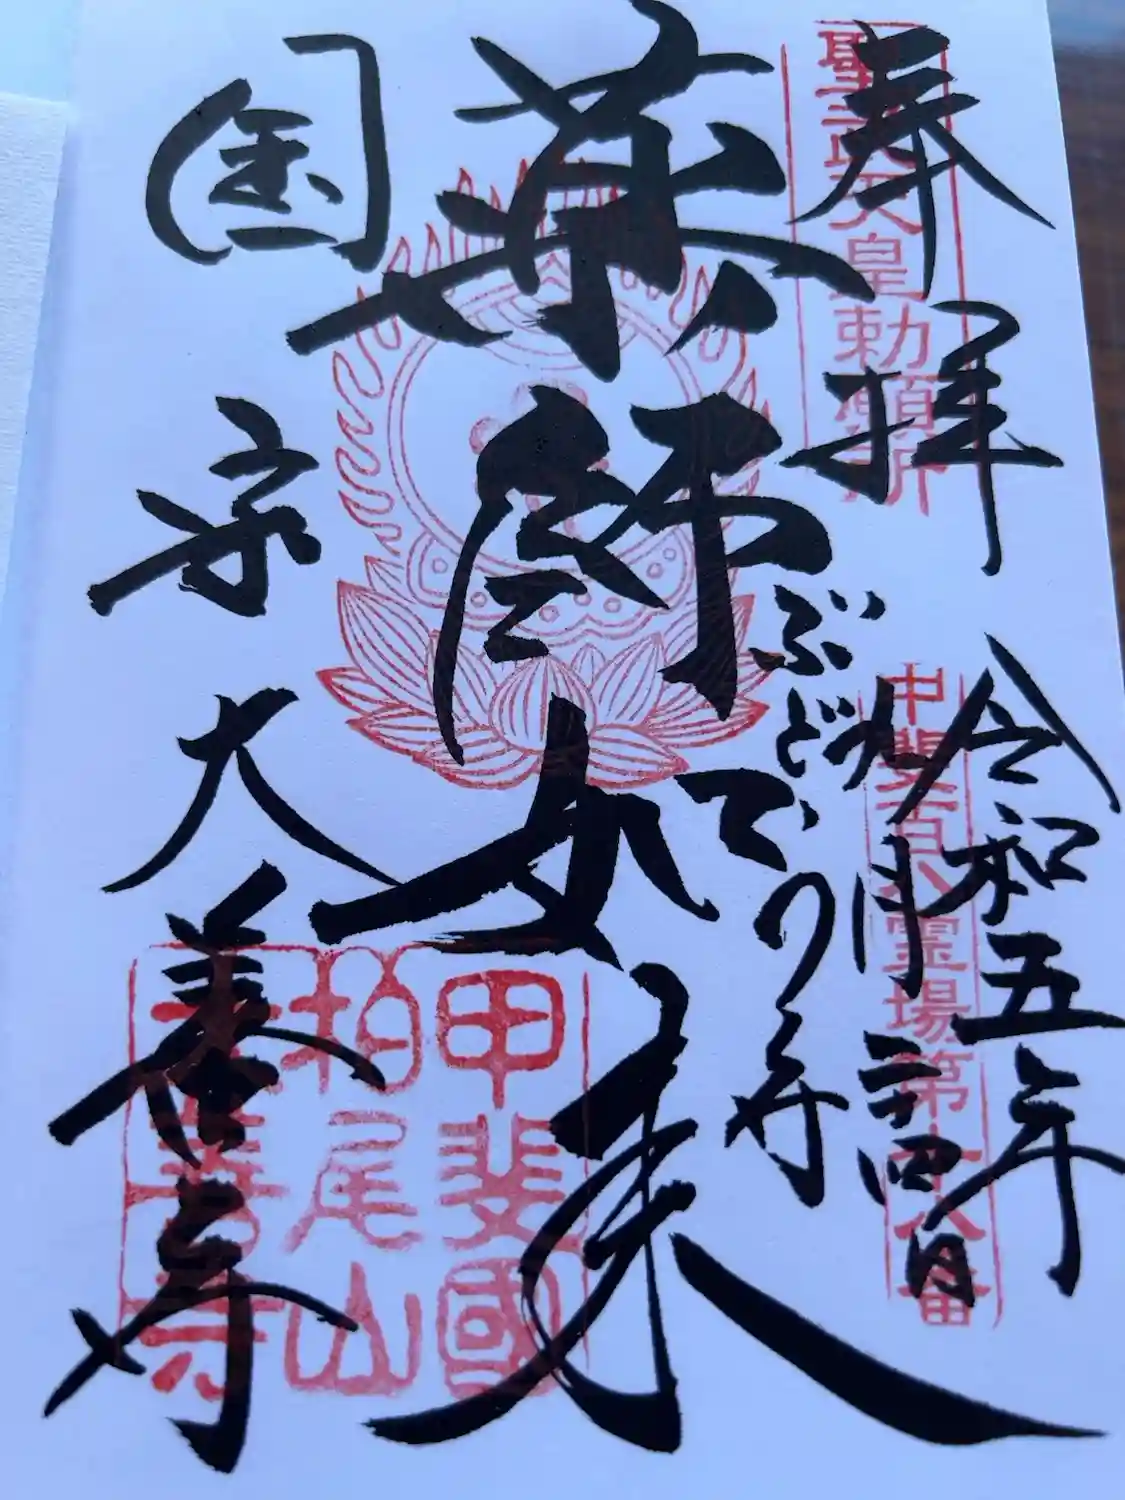 奉拝
聖武天皇勅願所
令和五年
九月二十四日
甲斐百八霊場第十八番
ぶどうでら
薬師如来
国宝
大善寺
甲斐國
柏尾山
大善寺